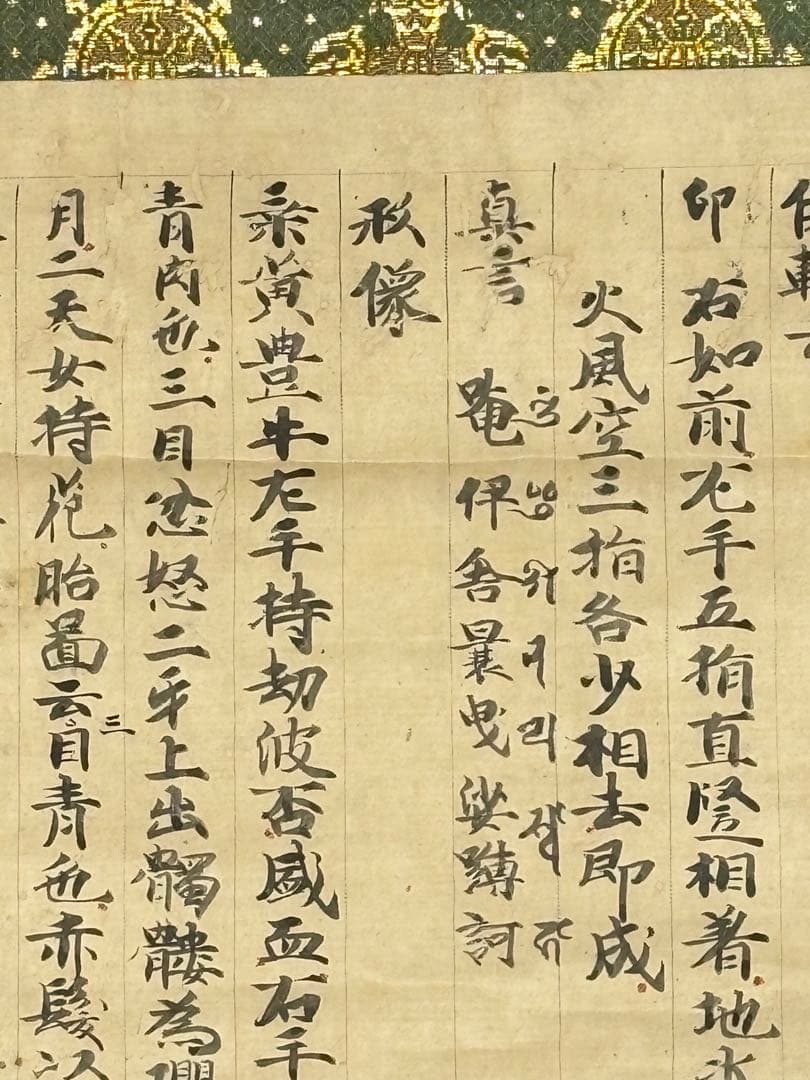 印 右如前左手五指直竪相着地水
火風空三指各少相去即成
真言 唵伊舎曩曳娑嚩訶
形像
乗黄豊牛左手持劫波杯盛血右手
青肉色三目忿怒二牙上出髑髏為瓔
月二天女持花胎圖云三目青色赤髪以